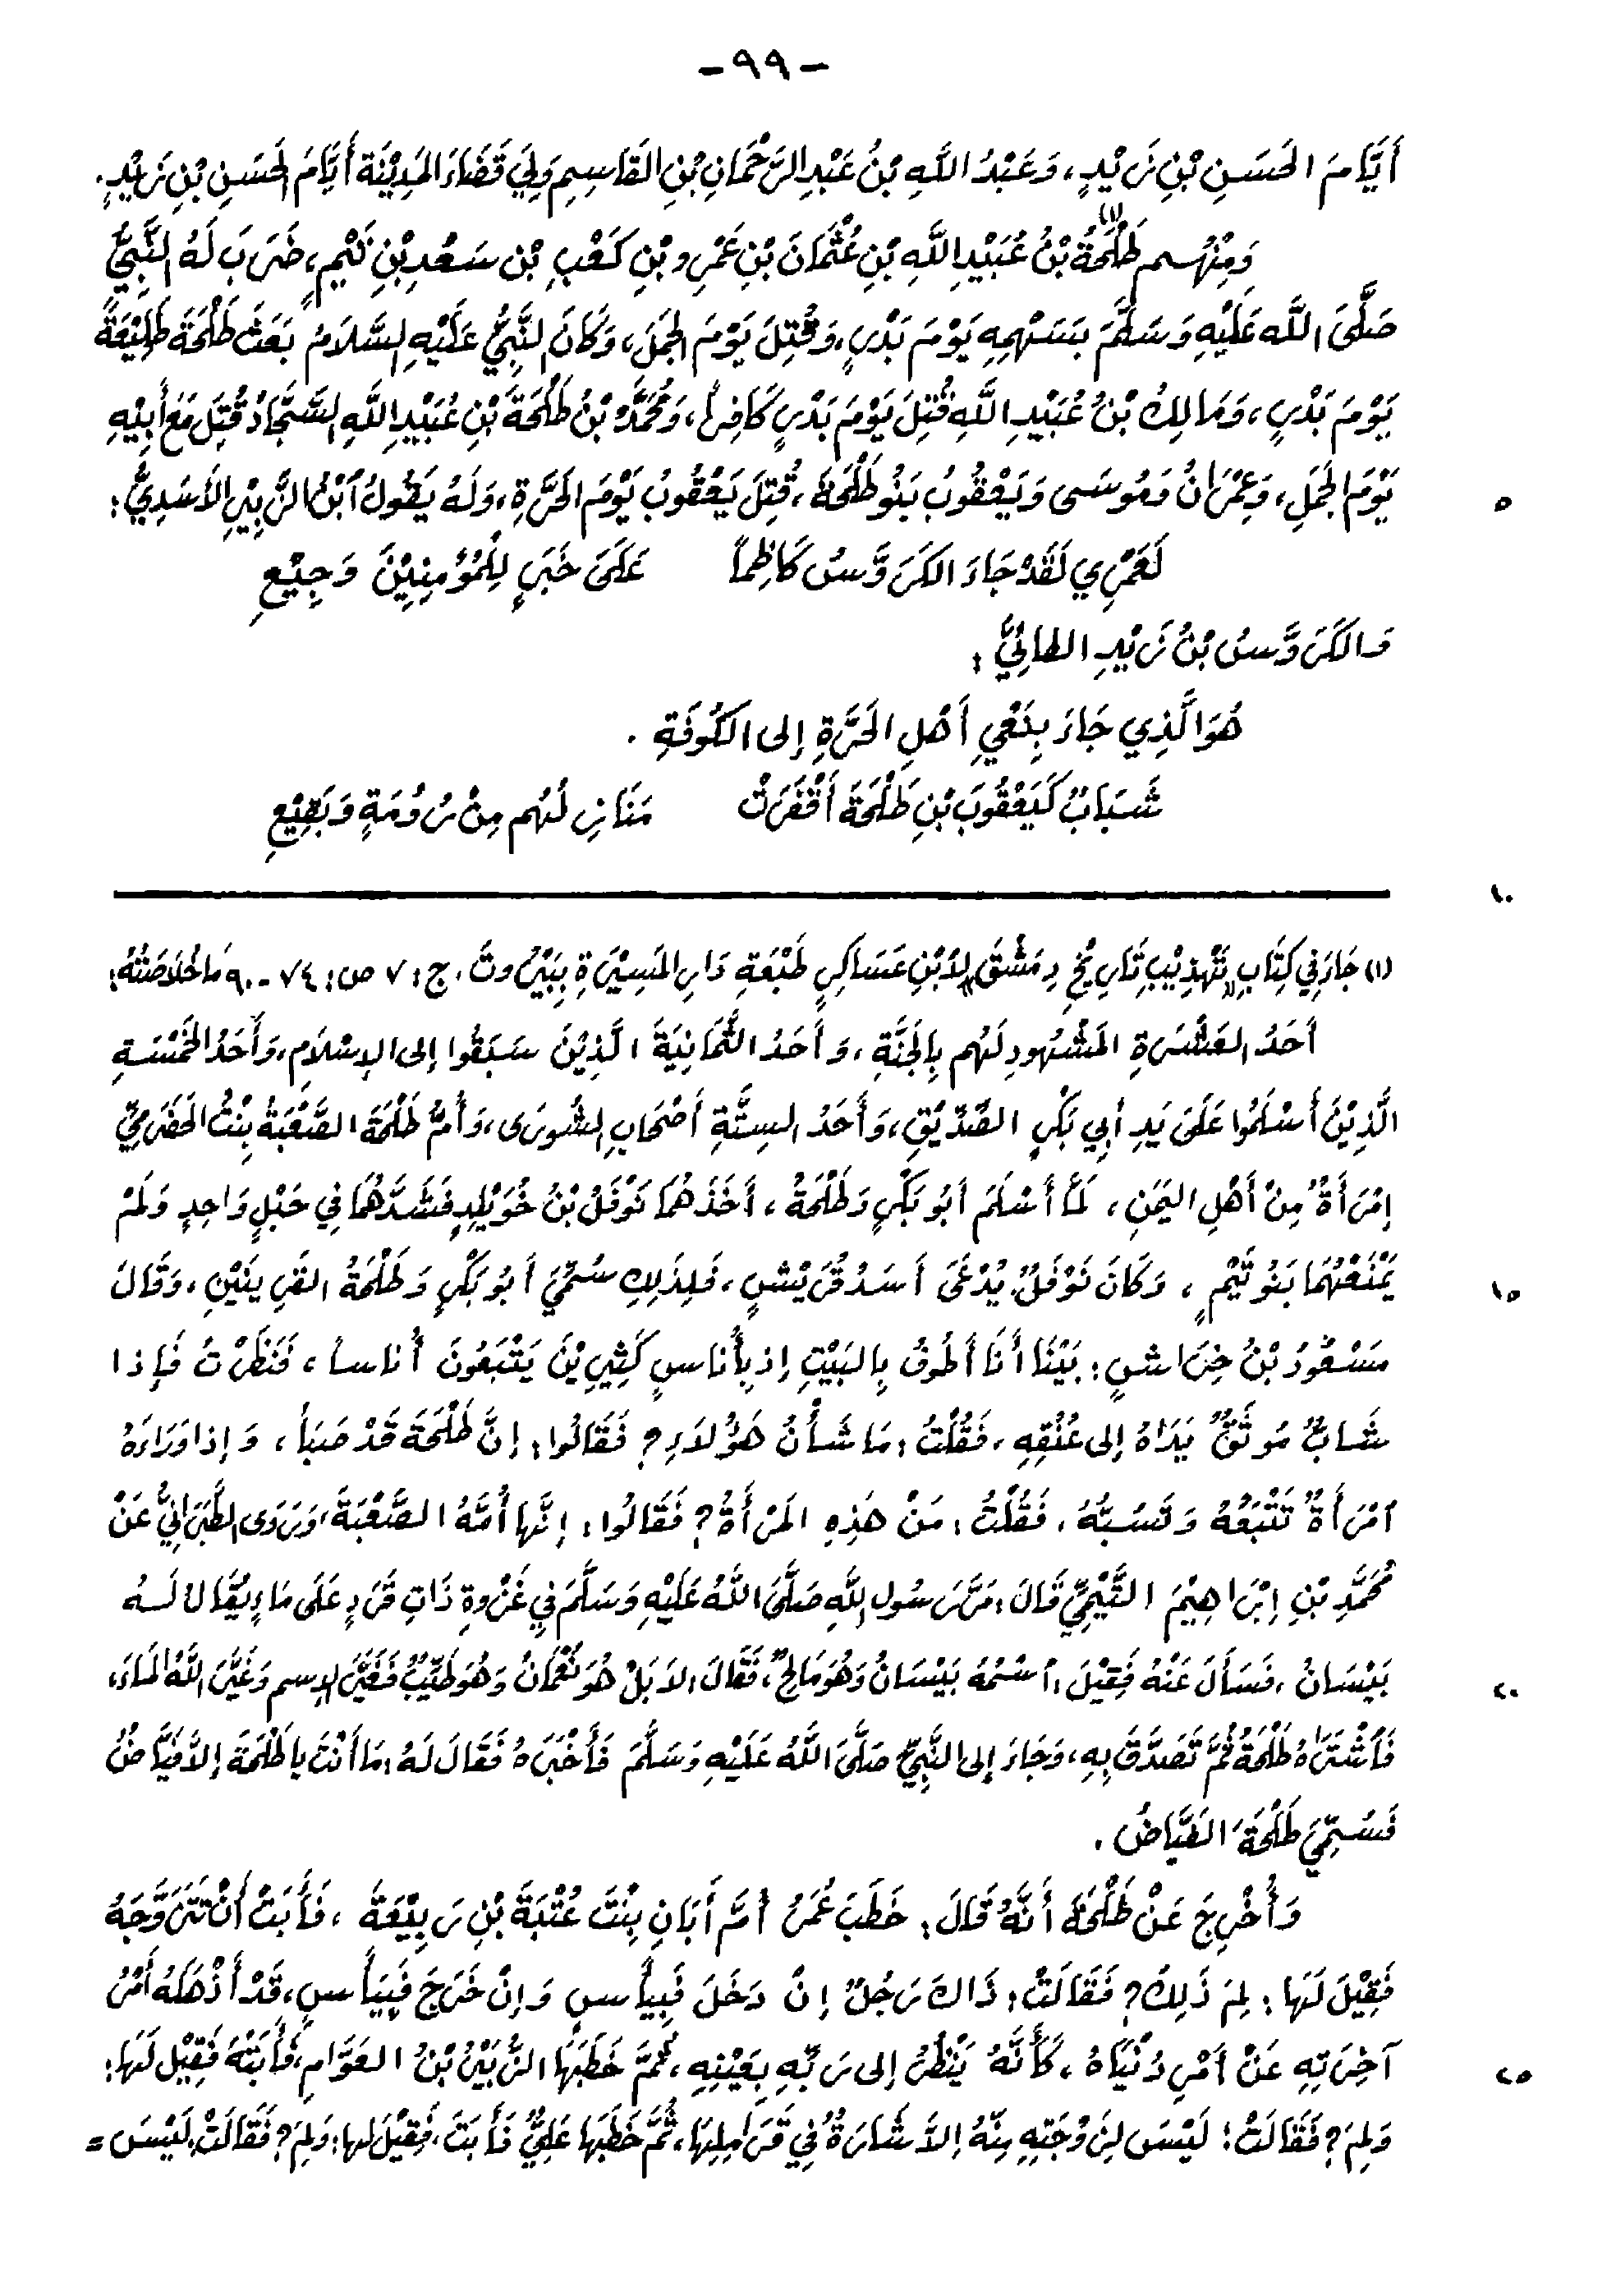 - ٩٩ -
أَيَّامَ الحَسَنِ بْنِ زَيْدٍ، وَعَبْدُ اللَّهِ بْنُ عَبْدِ الرَّحْمَانِ بْنِ القَاسِمِ وَلِيَ قَضَاءَ المَدِيْنَةِ أَيَّامَ الحَسَنِ بْنِ زَيْدٍ.
وَمِنْهُم طَلْحَةُ (١) بْنُ عُبَيْدِ اللَّهِ بْنِ عُثْمَانَ بْنِ عَمْرِو بْنِ كَعْبِ بْنِ سَعْدِ بْنِ تَيْمٍ، ضَرَبَ لَهُ النَّبِيُّ
صَلَّى اللَّه عَلَيْهِ وَسَلَّمَ بِسَهْمِهِ يَوْمَ بَدْرٍ، وَقُتِلَ يَوْمَ الجَمَلِ، وَكَانَ النَّبِيُّ عَلَيْهِ السَّلَامُ بَعَثَ طَلْحَةَ طَلِيْعَةً
يَوْمَ بَدْرٍ، وَمَالِكُ بْنُ عُبَيْدِ اللَّهِ قُتِلَ يَوْمَ بَدْرٍ كَافِراً، وَمُحَمَّدُ بْنُ طَلْحَةَ بْنِ عُبَيْدِ اللَّهِ السَّجَّادُ قُتِلَ مَعَ أَبِيْهِ
يَوْمَ الجَمَلِ، وَعِمْرَانُ وَمُوسَى وَيَعْقُوبُ بَنُو طَلْحَةَ، قُتِلَ يَعْقُوبُ يَوْمَ الحَرَّةِ، وَلَهُ يَقُولُ ابْنُ الزَّبِيْرِ الأَسَدِيُّ: ٥
لَعَمْرِي لَقَدْ جَاءَ الكَرَوَّسُ كَاظِماً عَلَى خَبَرٍ لِلْمُؤْمِنِيْنَ وَجِيْعِ
وَالكَرَوَّسُ بْنُ زَيْدٍ الطائِيُّ:
هُوَ الَّذِي جَاءَ بِنَعْيِ أَهْلِ الحَرَّةِ إلى الكُوفَةِ.
شَبَابٌ كَيَعْقُوبَ بْنِ طَلْحَةَ أَقْفَرَتْ مَنَازِلُهُم مِنْ رُومَةٍ وَبَقِيْعِ
١٠
(١) جَاءَ فِي كِتَابِ "تَهْذِيْبِ تَارِيْخِ دِمَشْقَ" لِابْنِ عَسَاكِرٍ طَبْعَةِ دَارِ المَسِيْرَةِ بِبَيْرُوتَ. ج: ٧ ص: ٧٤ - ٩٠ مَا خُلَاصَتُهُ:
أَحَدُ العَشَرَةِ المَشْهُودِ لَهُم بِالجَنَّةِ، وَأَحَدُ الثَّمَانِيَةَ الَّذِيْنَ سَبَقُوا إلى الإسْلَامِ، وَأَحَدُ الخَمْسَةِ
الَّذِيْنَ أَسْلَمُوا عَلَى يَدِ أَبِي بَكْرٍ الصِّدِّيْقِ، وَأَحَدُ السِتَّةِ أَصْحَابِ الشُّورَى، وَأُمُّ طَلْحَةَ الصَّعْبَةُ بِنْتُ الحَضْرَمِيِّ
امْرَأَةٌ مِنْ أَهْلِ اليَمَنِ، لَمَّا أَسْلَمَ أَبُو بَكْرٍ وَطَلْحَةُ، أَخَذَهُمَا نَوْفَلُ بْنُ خُوَيْلِدٍ فَشَدَّهُمَا فِي حَبْلٍ وَاحِدٍ وَلَمْ
يَمْنَعْهُمَا بَنُو تَيْمٍ، وَكَانَ نَوْفَلٌ يُدْعَى أَسَدُ قُرَيْشٍ، فَلِذَلِكِ سُمِّيَ أَبُو بَكْرٍ وَطَلْحَةُ القَرِينَيْنِ، وَقَالَ ١٥
مَسْعُودُ بْنُ خِرَاشٍ: بَيْنَا أَنَا أَطُوفُ بِالبَيْتِ إذ بِأُناسٍ كَثِيرِيْنَ يَتْبَعُونَ أُناساً، فَنَظَرْتُ فَإذا
شَابٌّ مُوثَقٌ يَدَاهُ إلى عُنُقِهِ، فَقُلْتُ: مَا شَأْنُ هَؤُلَاءِ؟ فَقَالُوا: إنَّ طَلْحَةَ قَدْ صَبَأَ، وَإذا وَرَاءَهُ
امْرَأَةٌ تَتْبَعُهُ وَتَسُبُّهُ، فَقُلْتُ: مَنْ هَذِهِ المَرْأَةُ؟ فَقَالُوا: إنَّها أُمُّهُ الصَّعْبَةُ، وَرَوَى الطَّبَرَانِيُّ عَنْ
مُحَمَّدِ بْنِ إبْرَاهِيْمَ التَّيْمِيِّ قَالَ: مَرَّ رَسُولُ اللَّهِ صَلَّى اللَّهُ عَلَيْهِ وَسَلَّمَ فِي غَزْوةِ ذَاتِ قَرَدٍ عَلَى مَاءٍ يُقَالُ لَهُ
بَيْسَانُ، فَسَأَلَ عَنْهُ فَقِيْلَ: اسْمُهُ بَيْسَانُ وَهُوَ مَالِحٌ، فَقَالَ: لَا بَلْ هُوَ نُعْمَانُ وَهُوَ طَيِّبٌ فَغَيَّرَ الإسم وَغَيَّرَ اللَّهُ المَاءَ، ٢٠
فَاشْتَرَاهُ طَلْحَةُ ثُمَّ تَصَدَّقَ بِهِ، وَجَاءَ إلى النَّبِيِّ صَلَّى اللَّهُ عَلَيْهِ وَسَلَّمَ فَأَخْبَرَهُ فَقَالَ لَهُ: مَا أَنْتَ يا طَلْحَةَ إلاَّ فَيَّاضٌ
فَسُمِّيَ طَلْحَةَ الفَيَّاضُ.
وَأُخْرِجَ عَنْ طَلْحَةَ أَنَّهُ قَالَ: خَطَبَ عُمَرُ أُمَّ أَبَانِ بِنْتَ عُتْبَةَ بْنِ رَبِيْعَةَ، فَأَبَتْ أَنْ تَتَزَوَّجَهُ
فَقِيْلَ لَهَا: لِمَ ذَلِكَ؟ فَقَالَتْ: ذَاكَ رَجُلٌ إنْ دَخَلَ فَبِيأسٍ وَإنْ خَرَجَ فَبِيَأسٍ، قَدْ أَذْهَلَهُ أَمْرُ
آخِرَتِهِ عَنْ أَمْرِ دُنْيَاهُ، كَأَنَّهُ يَنْظُرُ إلى رَبِّهِ بِعَيْنِهِ، ثُمَّ خَطَبَهَا الزُّبَيْرُ بْنُ العَوَّامِ، فَأَبَتْهُ فَقِيْلَ لَهَا: ٢٥
وَلِمَ؟ فَقَالَتْ: لَيْسَ لِزَوْجَتِهِ مِنْهُ إلاَّ شَارَةٌ فِي قَرَامِلِهَا، ثُمَّ خَطَبَها عَلِيٌّ فَأَبَتَ، فَقِيْلَ لها: وَلِمَ؟ فَقَالَتْ: لَيْسَ =